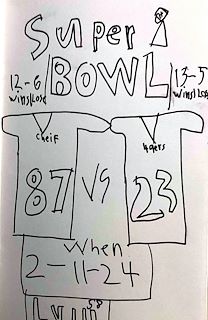 Super
BOWL
12-6
wins/Lose
13-5
wins/Lose
cheif
87
VS
23
When
2-11-24
LVIII
58